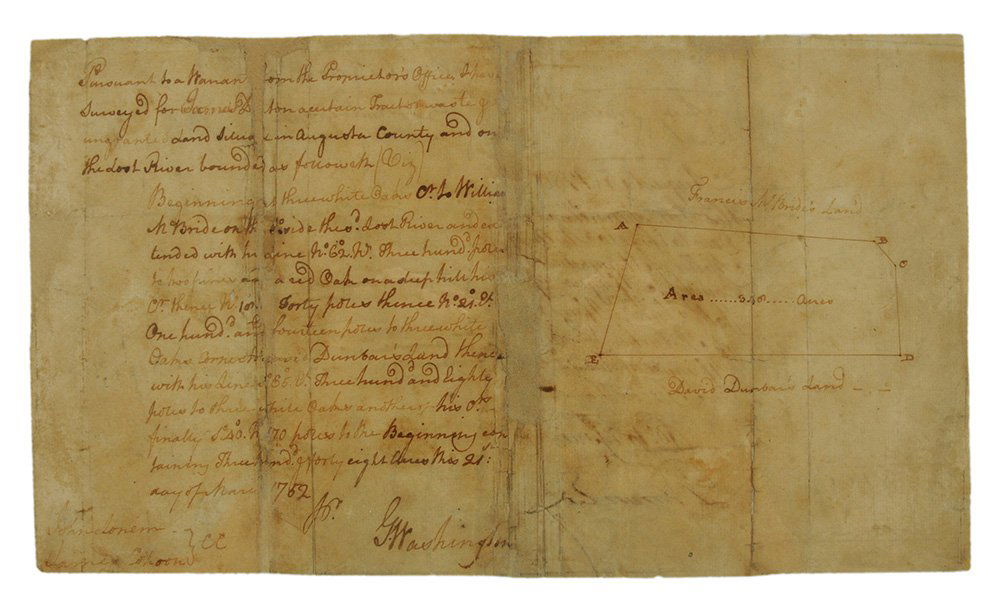 Pursuant to a Warran from the Proprietor's Office I have
Surveyed for a certain Tract of waste &
ungranted Land Situate in Augusta County and on
the Lost River bounded as followeth (Viz)
Beginning at three white Oaks Cr. to William
McBride on the side the sd. Lost River and ex
tended with his Line No. 62. Wt. Three hundd. poles
to two pines and a red Oak on a Steep hill his
Cr. thence No. 18 Forty poles thence No. 21. Et.
One hundd. and fourteen poles to three white
Oaks Corner Dunbar's Land thence
with his Line Three hundd. and Eighty
poles to three white Oaks another of his Crs.
finally So. 40. 70 poles to the Beginning con
taining Three hundd. & forty eight Acres this 21st:
day of Mar 1752
G Washington
John Lonem
James Cohoon } CC
Frances McBride's Land
A
B
C
Area ...... 348 ...... Acres
E
D
David Dunbar's Land - -